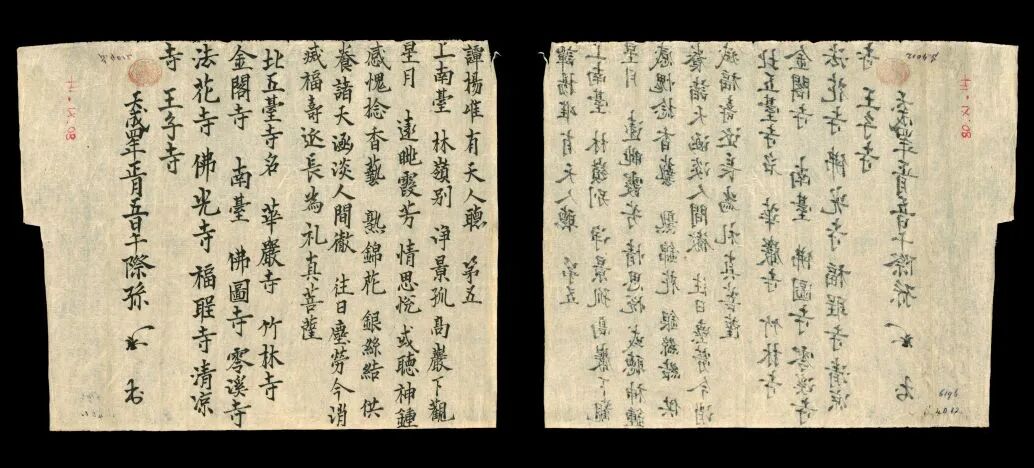 譚揚唯有天人聴 苐五
上南臺 林嶺別 浄景孤高巖下觀
星月 遠眺霞芳情思悅 或聴神鍾
感愧捻香爇 熟錦花 銀絲結 供
養諸天菡淡人間徹 往日塵勞今消
滅福壽延長為礼真菩薩
北五臺寺名 華嚴寺 竹林寺
金閣寺 南臺 佛圖寺 零溪寺
法花寺 佛光寺 福聖寺 清凉
寺 王子寺
天成四年正月五日午際孫 書
6196
4012